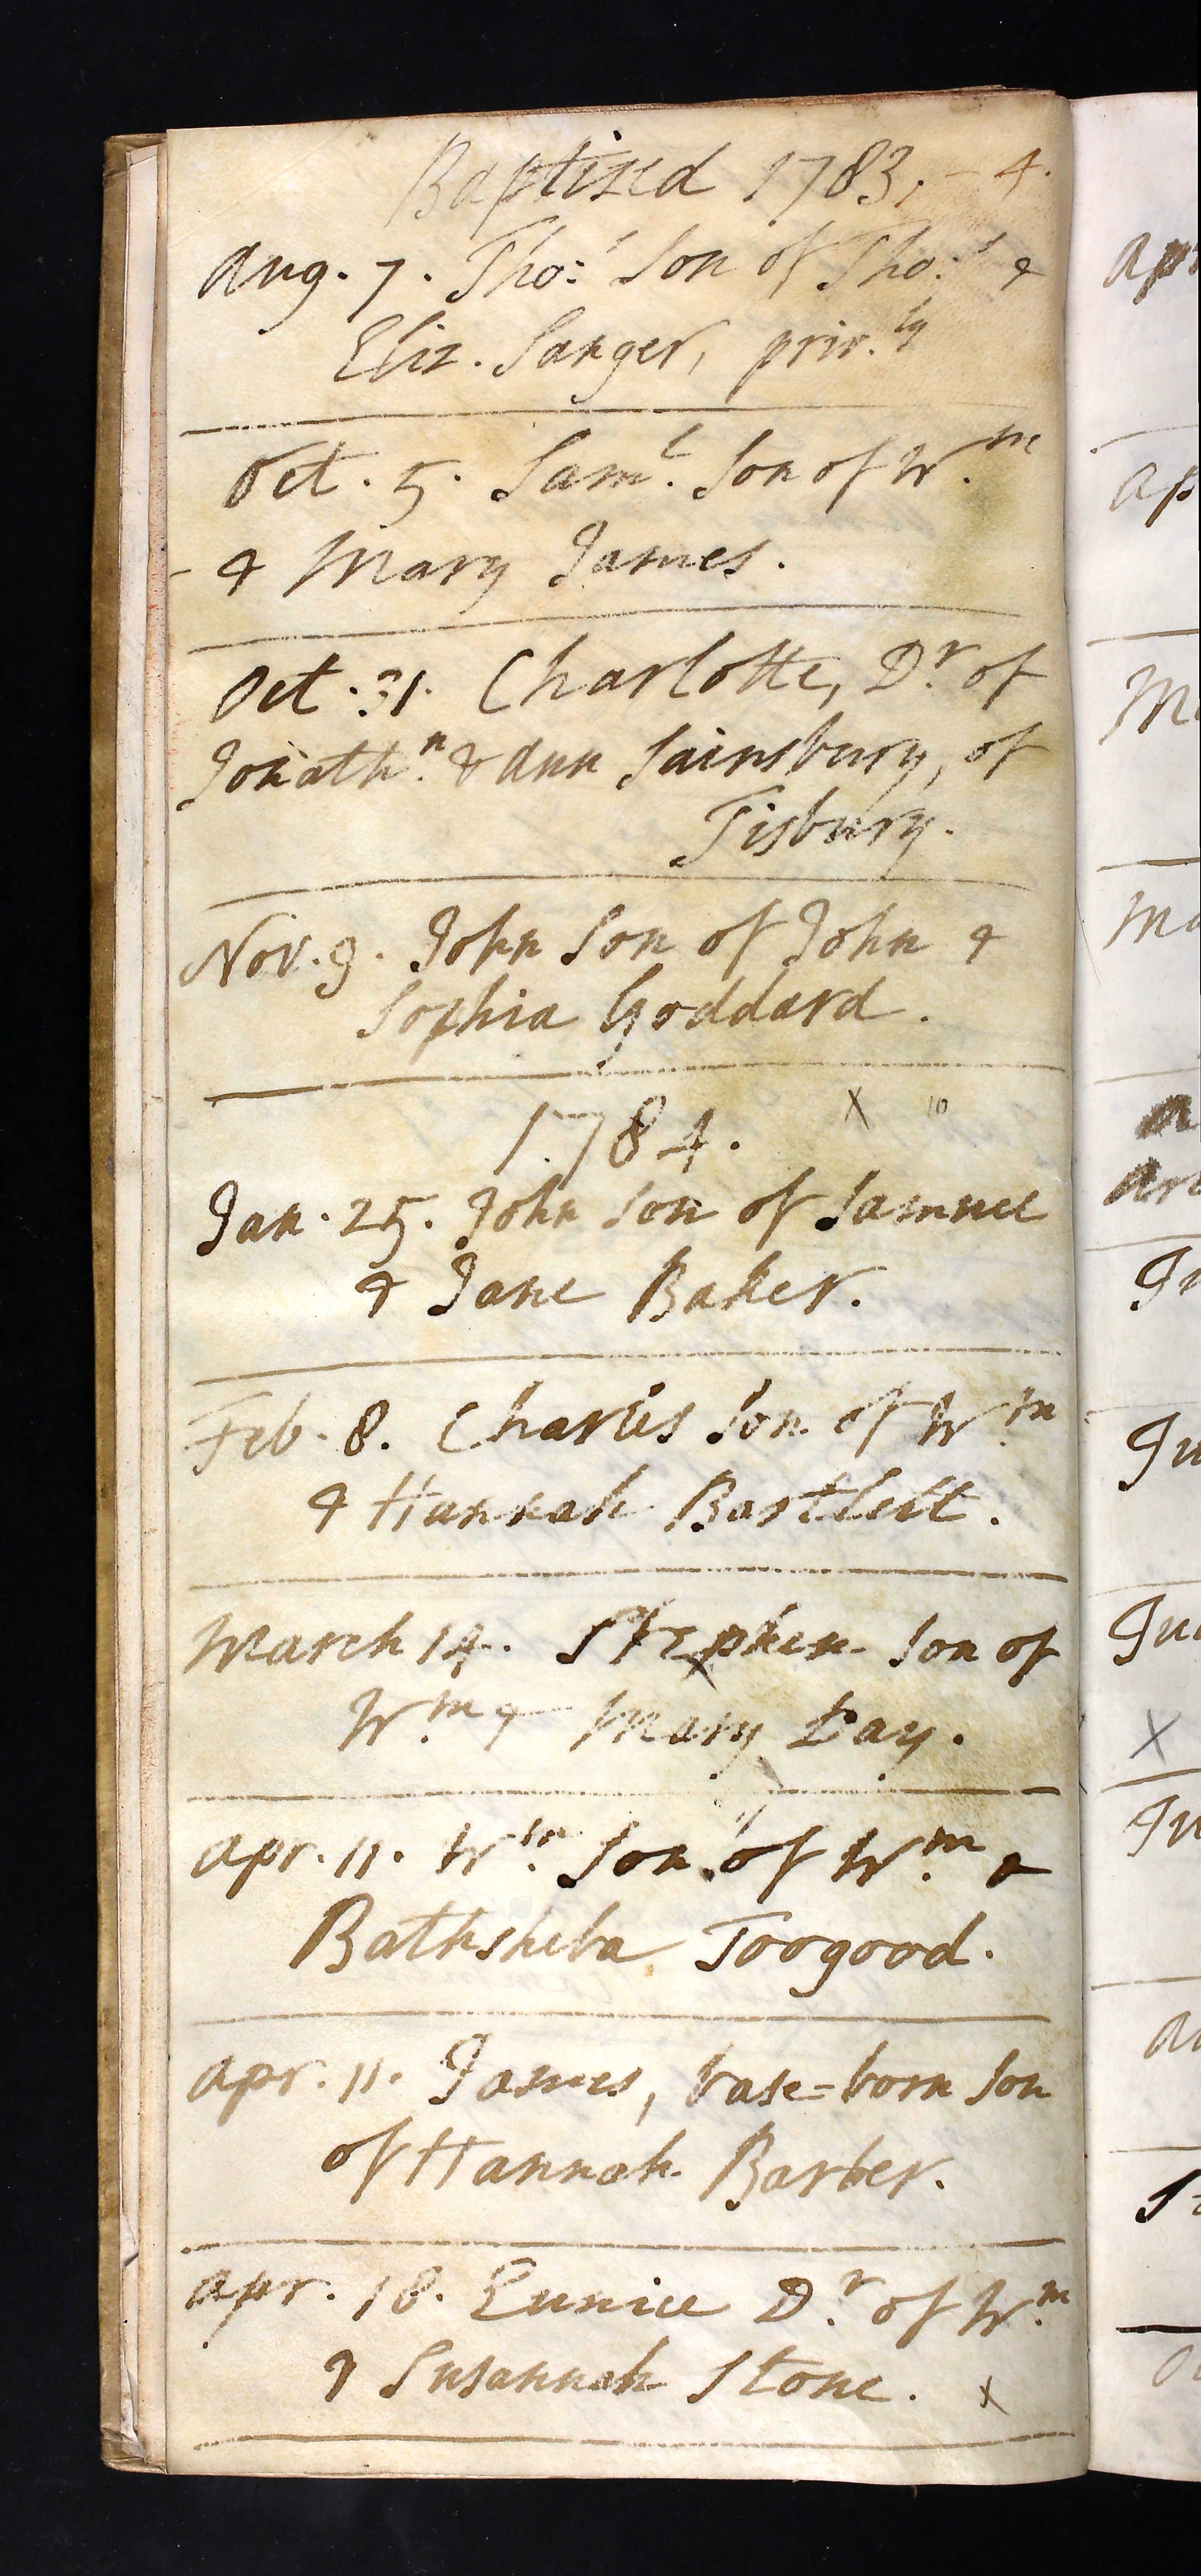 Baptized 1783. - 4.
Aug. 7. Tho:s Son of Tho:s &
Eliz. Sanger, priv.ly
Oct. 5. Sam.l Son of W.m
- & Mary James.
Oct. 31. Charlotte, D.r of
Jonath.n & Ann Sainsbury, of
Tisbury.
Nov. 9. John Son of John &
Sophia Goddard.
1784. X 10
Jan. 25. John Son of Samuel
& Jane Baker.
Feb. 8. Charles Son of W.m
& Hannah Bartlett.
March 14. Stephen Son of
W.m & Mary Day.
Apr. 11. W.m Son of W.m &
Bathsheba Toogood.
Apr. 11. James, base=born Son
of Hannah Barber.
Apr. 18. Eunice D.r of W.m
& Susannah Stone. X